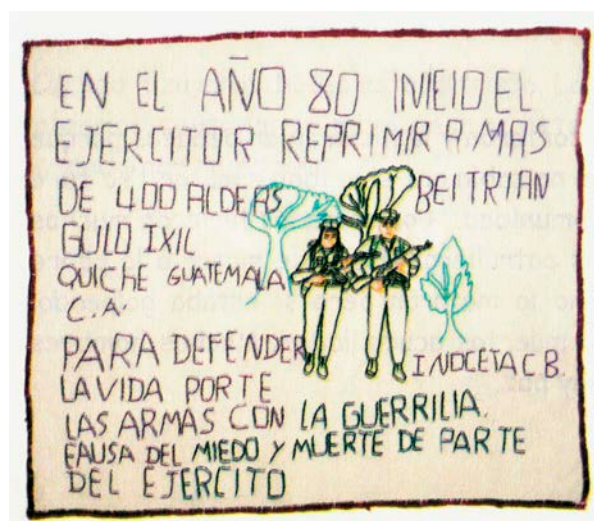 EN EL AÑO 80 INICIO EL
EJERCITOR REPRIMIR A MAS
DE 400 ALDEAS
BEITRIAN
GULO IXIL
QUICHE GUATEMALA
C.A.
PARA DEFENDER
INOCETA C.B.
LA VIDA PORTE
LAS ARMAS CON LA GUERRILIA.
FAUSA DEL MIEDO Y MUERTE DE PARTE
DEL EJERCITO